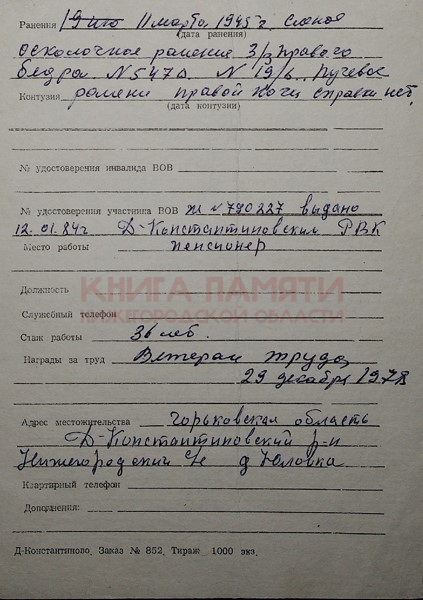 Ранения 11 марта 1945 г. слепое
(дата ранения)
осколочное ранение 3/3 правого
бедра. N 547д N 19/6. Пулевое
Контузия ранени правой ноги справки нет.
(дата контузии)
№ удостоверения инвалида ВОВ
№ удостоверения участника ВОВ Ж N 790227 выдано
12.01.84г Д-Константиновским РВК
Место работы пенсионер
КНИГА ПАМЯТИ
Должность
НИЖЕГОРОДСКОЙ ОБЛАСТИ
Служебный телефон
Стаж работы 36 лет.
Награды за труд Ветеран труда
29 декабря 1978
Адрес местожительства Горьковская область
Д-Константиновский р-н
Нижегородский с/с д Юловка
Квартирный телефон
Дополнения:
Д-Константиново, Заказ № 852, Тираж 1000 экз.